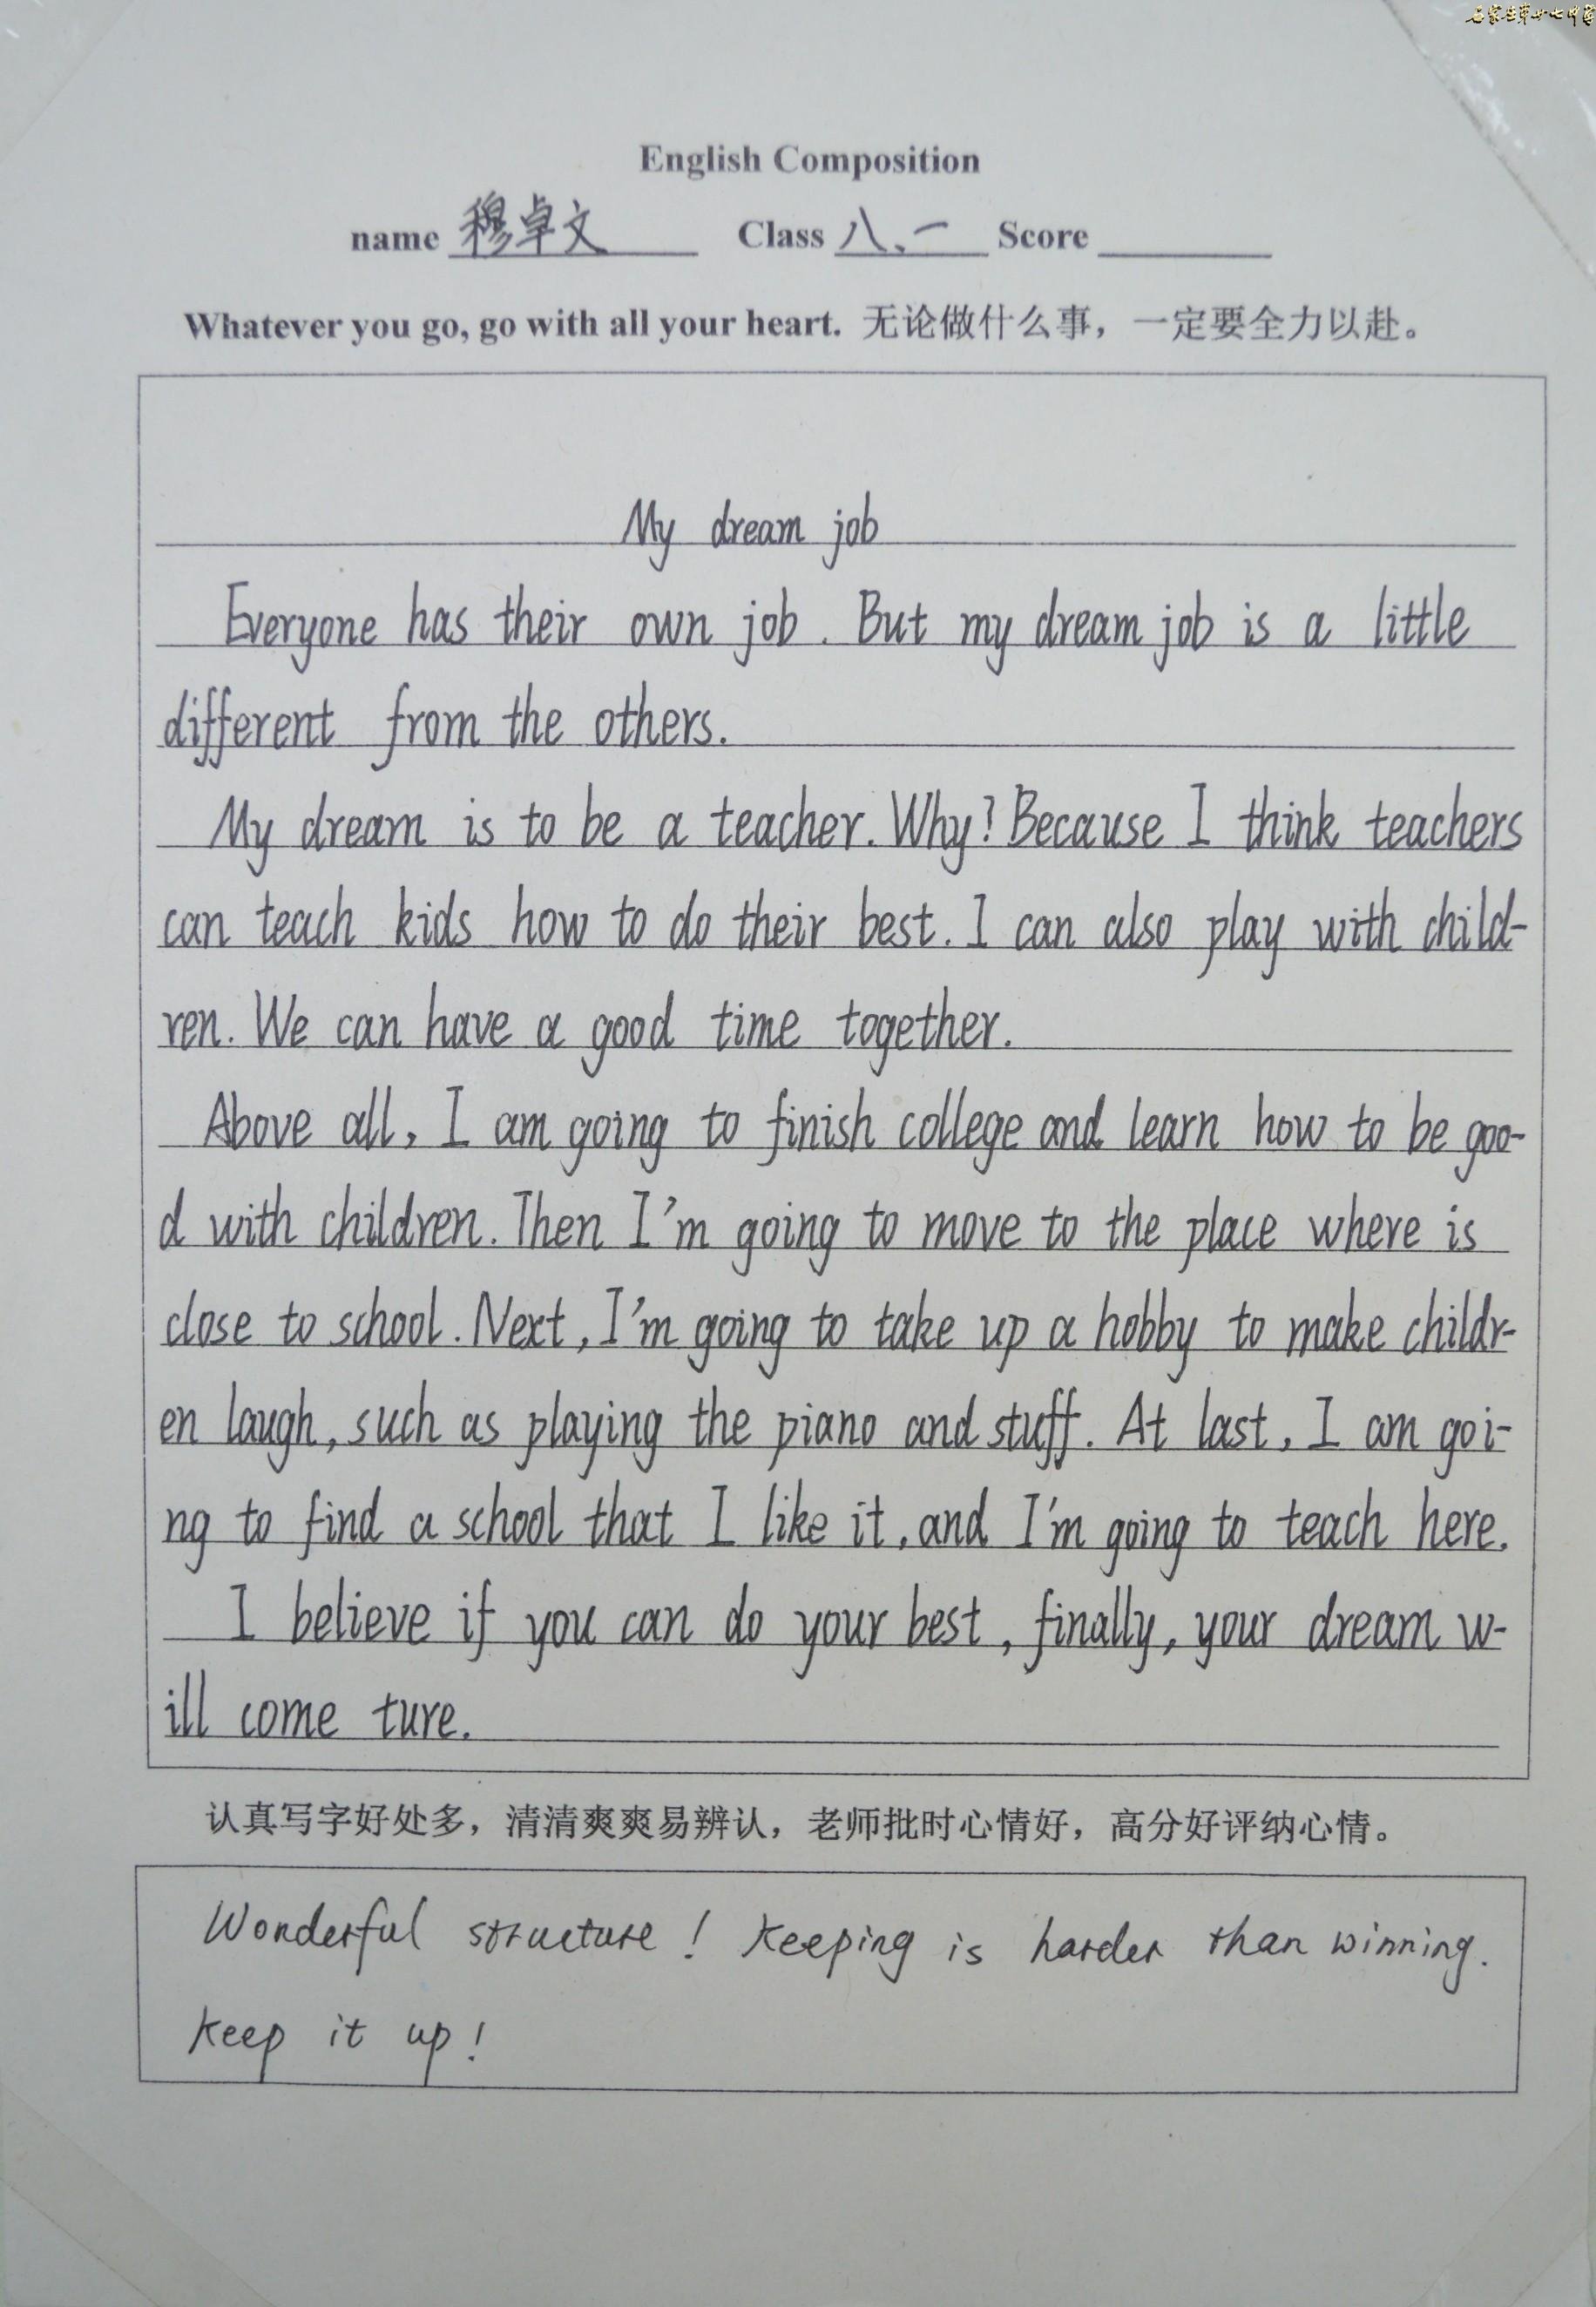 石家庄第四十七中学
English Composition
name 穆卓文 Class 八、一 Score
Whatever you go, go with all your heart. 无论做什么事，一定要全力以赴。
My dream job
Everyone has their own job. But my dream job is a little
different from the others.
My dream is to be a teacher. Why? Because I think teachers
can teach kids how to do their best. I can also play with child-
ren. We can have a good time together.
Above all, I am going to finish college and learn how to be goo-
d with children. Then I'm going to move to the place where is
close to school. Next, I'm going to take up a hobby to make childr-
en laugh, such as playing the piano and stuff. At last, I am goi-
ng to find a school that I like it, and I'm going to teach here.
I believe if you can do your best, finally, your dream w-
ill come ture.
认真写字好处多，清清爽爽易辨认，老师批时心情好，高分好评纳心情。
Wonderful structure! Keeping is harder than winning.
Keep it up!